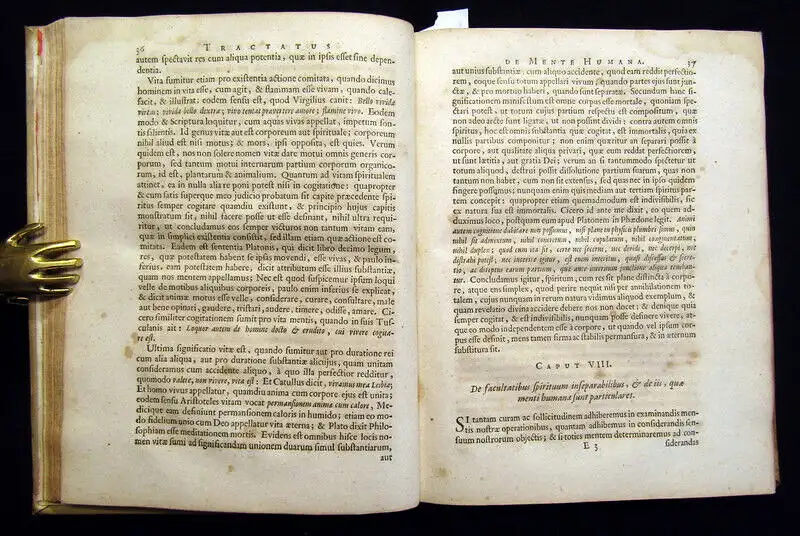 36 TRACTATUS
autem spectavit res cum aliqua potentia, quæ in ipsis esset sine depen-
dentia.
Vita sumitur etiam pro existentia actione comitata, quando dicimus
hominem in vita esse, cum agit, & flammam esse vivam, quando cale-
facit, & illustrat: eodem sensu est, quod Virgilius canit: Bello vivida
virtus; vivida bello dextra; vivo tentat prævertere amore; flumine vivo. Eodem
modo & Scriptura loquitur, cum aquas vivas appellat, impetum fon-
tis silientis. Id genus vitæ aut est corporeum aut spirituale; corporeum
nihil aliud est nisi motus; & mors, ipsi opposita, est quies. Verum
quidem est, nos non solere nomen vitæ dare motui omnis generis cor-
porum, sed tantum motui internarum partium corporum organico-
rum, id est, plantarum & animalium. Quantum ad vitam spiritualem
attinet, ea in nulla alia re poni potest nisi in cogitatione: quapropter
& cum satis superque meo judicio probatum sit capite præcedente spi-
ritus semper cogitare quamdiu existunt, & principio hujus capitis
monstratum sit, nihil facere posse ut esse desinant, nihil ultra requi-
ritur, ut concludamus eos semper victuros non tantum vitam eam,
quæ in simplici existentia consistit, sed illam etiam quæ actione est co-
mitata. Eadem est sententia Platonis, qui dicit libro decimo legum,
res, quæ potestatem habent se ipsas movendi, esse vivas, & paulo in-
ferius, eam potestatem habere, dicit attributum esse illius substantiæ,
quam nos mentem appellamus; Nec est quod suspicemur ipsum loqui
velle de motibus aliquibus corporeis, paulo enim inferius se explicat,
& dicit animæ motus esse velle, considerare, curare, consultare, male
aut bene opinari, gaudere, tristari, audere, timere, odisse, amare. Ci-
cero similiter cogitationem sumit pro vita mentis, quando in suis Tus-
culanis ait: Loquor autem de homine docto & erudito, cui vivere cogita-
re est.
Ultima significatio vitæ est, quando sumitur aut pro duratione rei
cum alia aliqua, aut pro duratione substantiæ alicujus, quam unitam
consideramus cum accidente aliquo, à quo illa perfectior redditur,
quomodo valere, non vivere, vita est: Et Catullus dicit, vivamus mea Lesbia;
Et homo vivus appellatur, quamdiu anima cum corpore ejus est unita;
eodem sensu Aristoteles vitam vocat permansionem animæ cum calore, Me-
dicique eam definiunt permansionem caloris in humido; etiam eo mo-
do fidelium unio cum Deo appellatur vita æterna; & Plato dixit Philo-
sophiam esse meditationem mortis. Evidens est omnibus hisce locis no-
men vitæ sumi ad significandam unionem duarum simul substantiarum,
aut
DE MENTE HUMANA. 37
aut unius substantiæ, cum aliquo accidente, quod eam reddat perfectio-
rem, eoque sensu totum appellari vivum, quando partes ejus sunt jun-
ctæ, & pro mortuo haberi, quando sunt separatæ. Secundum hanc si-
gnificationem manifestum est omne corpus esse mortale, quoniam spe-
ctari potest, ut totum cujus partium respectu est compositum, quæ
non adeo arcte sunt ligatæ, ut non possint dividi: contra autem omnis
spiritus, hoc est omnis substantia quæ cogitat, est immortalis, quia ex
nullis partibus componitur; non enim quæritur an separari possit à
corpore, aut qualitate aliqua privari, quæ eum reddat perfectiorem,
ut sunt lætitia, aut gratia Dei; verum an si tantummodo spectetur ut
totum aliquod, destrui possit dissolutione partium suarum, quas non
tantum non habet, cum non sit extensus, sed quas nec in ipso quidem
fingere possumus; nunquam enim quis mediam aut tertiam spiritus par-
tem concepit: quapropter etiam quemadmodum est indivisibilis, sic
ex natura sua est immortalis. Cicero id ante me dixit, eo quem ad-
duximus loco, postquam eum apud Platonem in Phædone legit. Animi
autem cognitione dubitare non possumus, nisi plane in physicis plumbei simus, quin
nihil sit admixtum, nihil concretum, nihil copulatum, nihil coagmentatum,
nihil duplex: quod cum ita sit, certe nec secerni, nec dividi, nec decerpi, nec
distrahi potest, nec interire igitur, est enim interitus, quasi discessus & secre-
tio, ac direptus earum partium, quæ ante interitum junctione aliqua teneban-
tur. Concludamus igitur, spiritum, quod est res plane distincta à corpo-
re, atque ens simplex, quod perire nequit nisi per annihilationem to-
talem, cujus nunquam in rerum natura vidimus aliquod exemplum, &
quam revelatio divina accidere debere nos non docet; & denique quia
semper cogitat, & est indivisibilis, nunquam posse desinere vivere, at-
que eo modo independentem esse à corpore, ut quando vel ipsum cor-
pus esse desinit, mens tamen firma ac stabilis permansura, & in æternum
substitura sit.
CAPUT VIII.
De facultatibus spirituum inseparabilibus, & de iis, quæ
menti humanæ sunt particulares.
SI tantam curam ac sollicitudinem adhiberemus in examinandis men-
tis nostræ operationibus, quantam adhibemus in considerandis sen-
suum nostrorum objectis; & si toties mentem determinaremus ad con-
E 3 siderandas